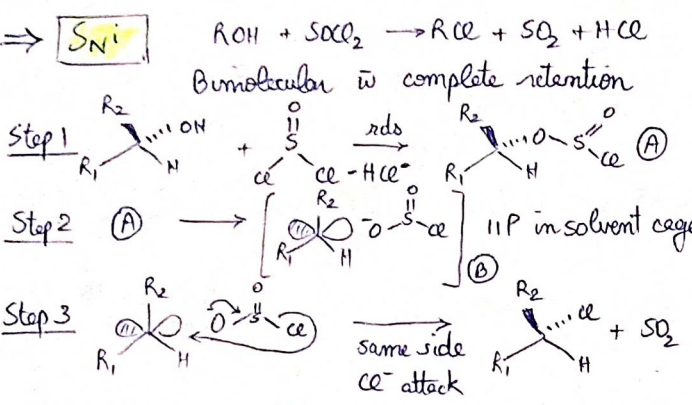 ⇒ SNi ROH + SOCl2 → RCl + SO2 + HCl
Bimolecular w̄ complete retention
Step 1 R2 R1 OH H + O S Cl Cl rds -HCl R2 R1 O S O Cl H A
Step 2 A → [ R2 R1 H ⁻O S O Cl ] B IIP in solvent cage
Step 3 R2 R1 H O S O Cl → same side Cl⁻ attack R2 R1 Cl H + SO2